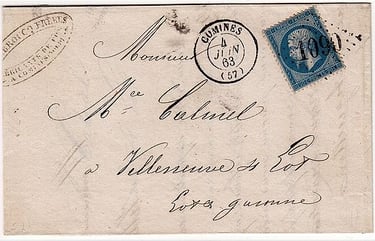 FRÈRES
COMINES
4
JUIN
63
(57)
1090
Monsieur
Mce Calmel
à Villeneuve s Lot
Lot & garonne